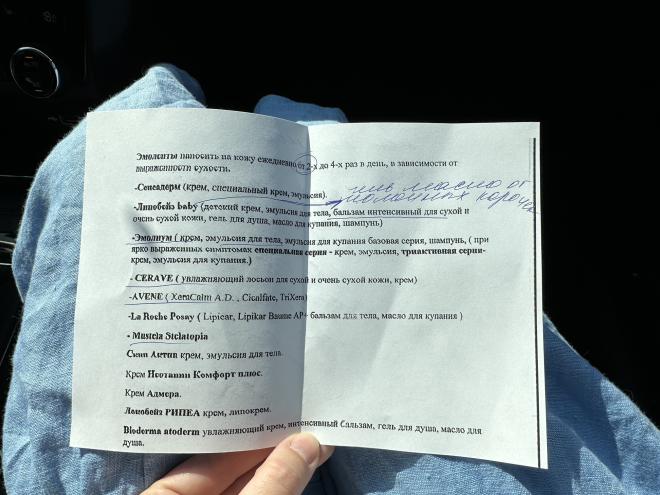 Эмоленты наносить на кожу ежедневно от 2-х до 4-х раз в день, в зависимости от
выраженности сухости.
-Сенсадерм (крем, специальный крем, эмульсия).
или масло от молочных корочек
-Липобейз baby (детский крем, эмульсия для тела, бальзам интенсивный для сухой и
очень сухой кожи, гель для душа, масло для купания, шампунь)
-Эмолиум ( крем, эмульсия для тела, эмульсия для купания базовая серия, шампунь, ( при
ярко выраженных симптомах специальная серия - крем, эмульсия, триактивная серия-
крем, эмульсия для купания.)
- CERAVE ( увлажняющий лосьон для сухой и очень сухой кожи, крем)
-AVENE ( XeraCalm A.D. , Cicalfate, TriXera)
-La Roche Posay ( Lipicar, Lipikar Baume AP+ бальзам для тела, масло для купания )
- Mustela Stelatopia
Скин Актив крем, эмульсия для тела.
Крем Неотанин Комфорт плюс.
Крем Адмера.
Локобейз РИПЕА крем, липокрем.
Bioderma atoderm увлажняющий крем, интенсивный Сальзам, гель для душа, масло для
душа.